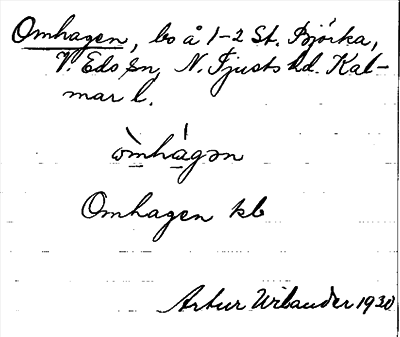 Omhagen, bo å 1-2 St. Björka,
V. Eds sn, N. Tjusts hd. Kal-
mar l.
òmhàgən
Omhagen kb
Artur Urbander 1930